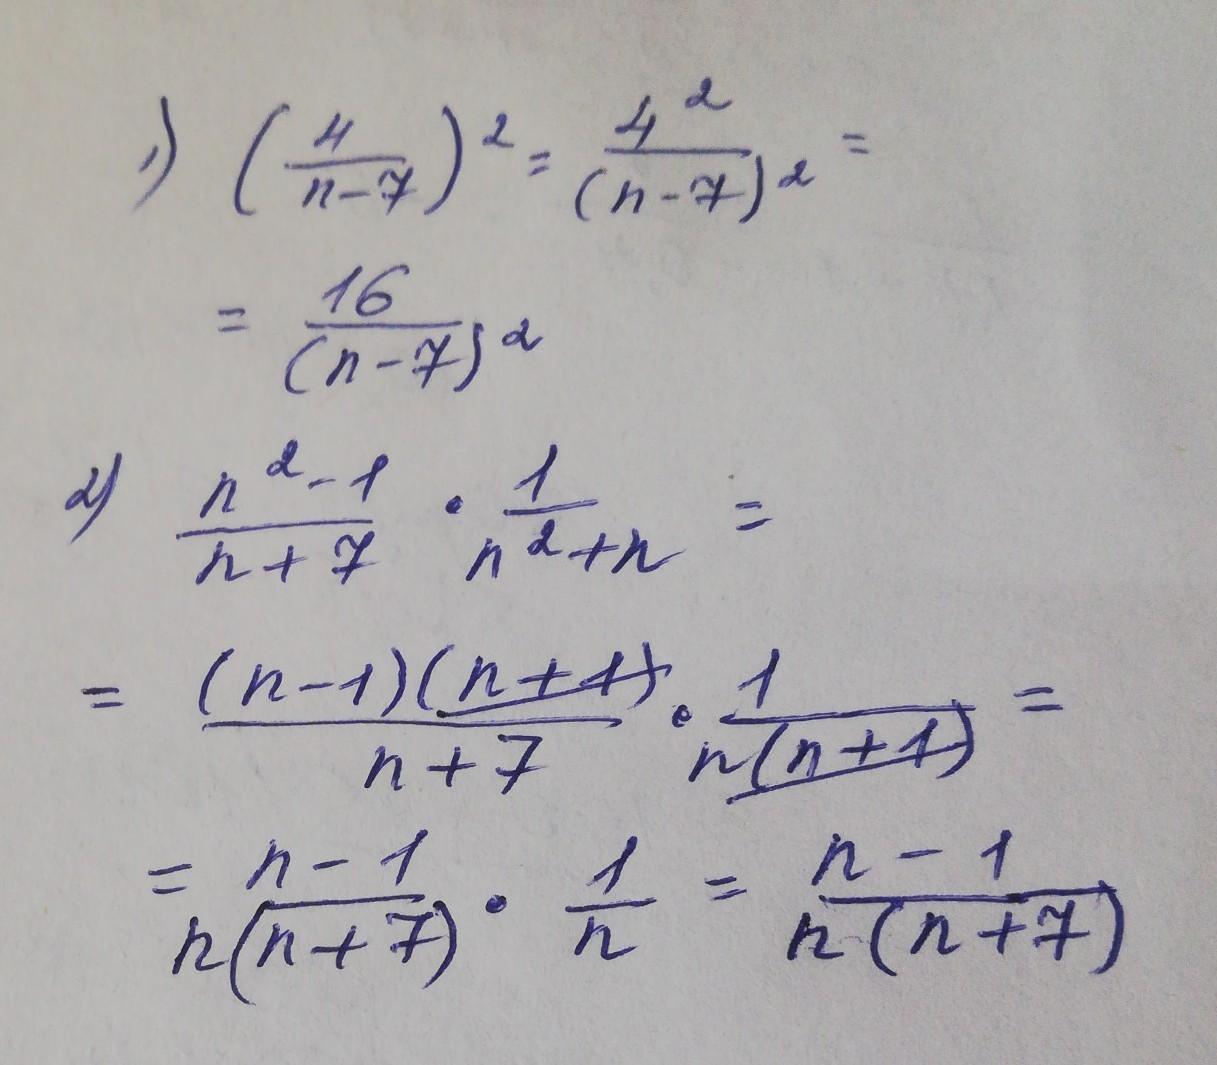 1) (4/(n-7))² = 4²/(n-7)² =
= 16/(n-7)²
2) (n²-1)/(n+7) · 1/(n²+n) =
= (n-1)(n+1)/(n+7) · 1/(n(n+1)) =
= (n-1)/(n(n+7)) · 1/n = (n-1)/(n(n+7))